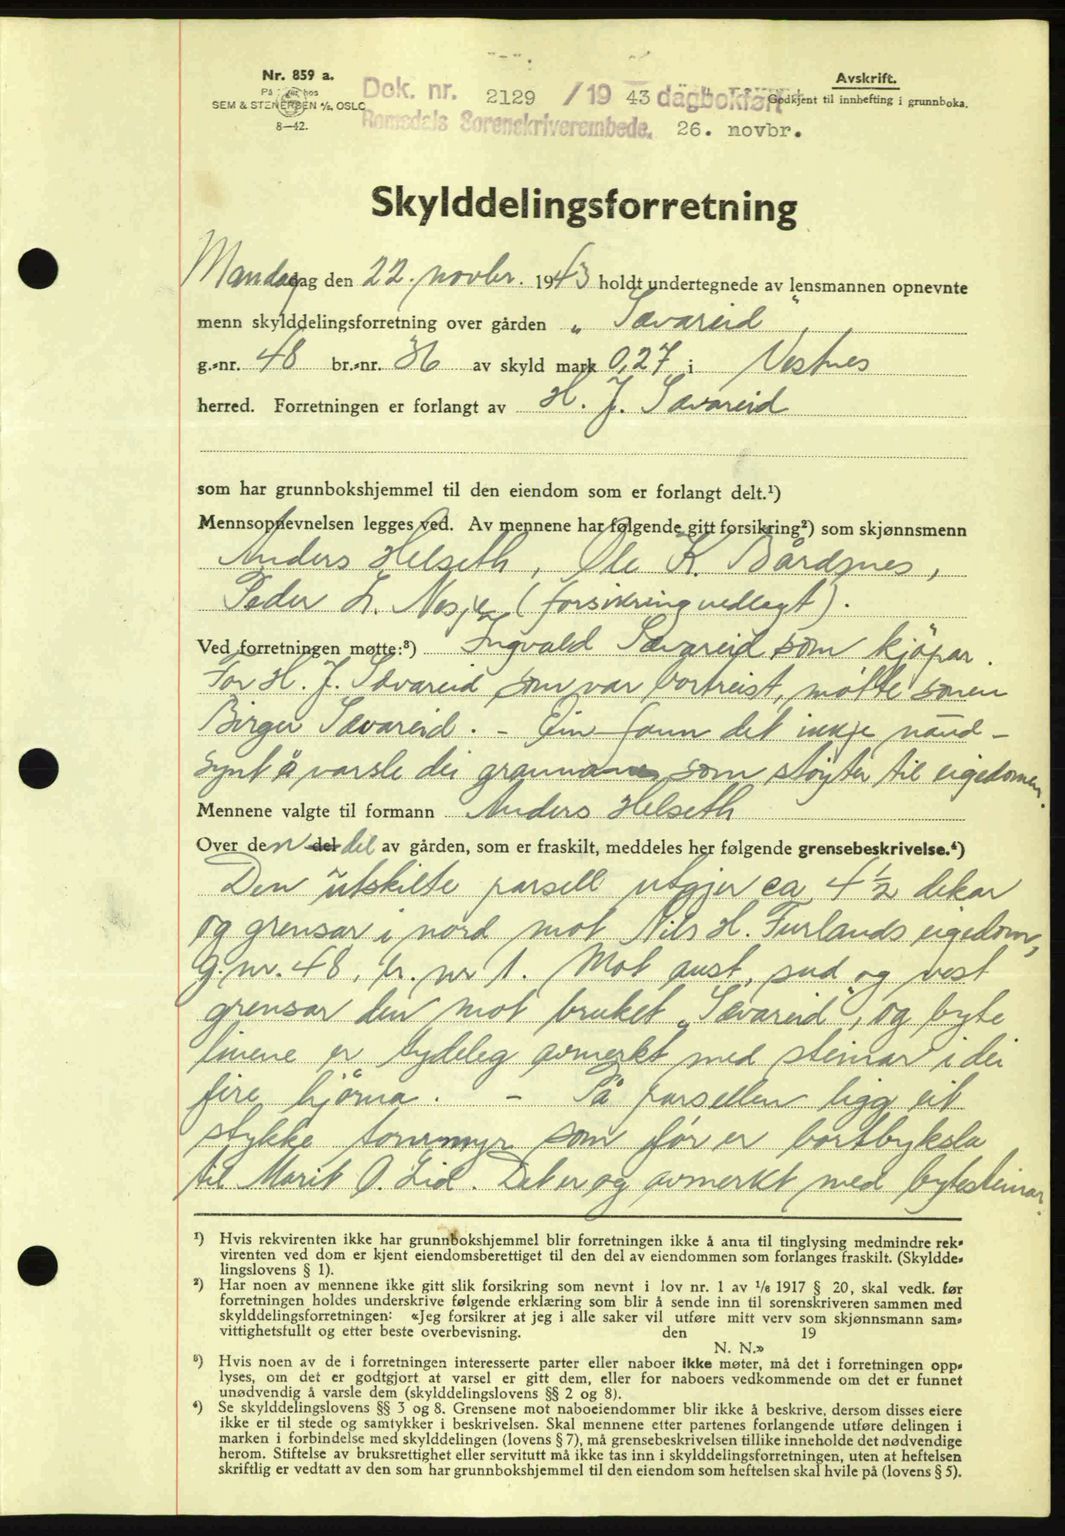 Nr. 859 a.
SEM & STENERSEN A/S, OSLO
8—42.
Avskrift.
Godkjent til innhefting i grunnboka.
Dok. nr. 2129 / 19 43 dagbokført
Romsdals Sorenskriverembede. 26. novbr.
Skylddelingsforretning
Mandag den 22. novbr. 1943 holdt undertegnede av lensmannen opnevnte
menn skylddelingsforretning over gården „Sævareid",
g.-nr. 48 br.-nr. 36 av skyld mark 0,27 i Vestnes
herred. Forretningen er forlangt av H. J. Sævareid
som har grunnbokshjemmel til den eiendom som er forlangt delt.¹)
Mennsopnevnelsen legges ved. Av mennene har følgende gitt forsikring²) som skjønnsmenn
Anders Helseth, Ole K. Bårdsnes,
Peder L. Nesje (forsikring vedlagt).
Ved forretningen møtte:³) Ingvald Sævareid som kjöpar.
For H. J. Sævareid som var bortreist, møtte sonen
Birger Sævareid. - Ein fann det inkje naud-
synt å varsle dei grannane som støyter til eigedomen.
Mennene valgte til formann Anders Helseth
Over den del del av gården, som er fraskilt, meddeles her følgende grensebeskrivelse.⁴)
Den utskilte parsell utgjer ca 4 1/2 dekar
og grensar i nord mot Nils H. Furlands eigedom,
g.nr. 48, br. nr 1. Mot aust, sud og vest
grensar den mot bruket „Sævareid", og byte
linene er tydeleg avmerkt med steinar i dei
fire hjörna. - På parsellen ligg eit
stykke som før er bortbyksla
til Marit O. Lid. Det er og avmerkt med bytesteinar.
¹) Hvis rekvirenten ikke har grunnbokshjemmel blir forretningen ikke å anta til tinglysing medmindre rek-
virenten ved dom er kjent eiendomsberettiget til den del av eiendommen som forlanges fraskilt. (Skyldde-
lingslovens § 1).
²) Har noen av mennene ikke gitt slik forsikring som nevnt i lov nr. 1 av 1/6 1917 § 20, skal vedk. før
forretningen holdes underskrive følgende erklæring som blir å sende inn til sorenskriveren sammen med
skylddelingsforretningen: «Jeg forsikrer at jeg i alle saker vil utføre mitt verv som skjønnsmann sam-
vittighetsfullt og etter beste overbevisning. den 19
N. N.»
³) Hvis noen av de i forretningen interesserte parter eller naboer ikke møter, må det i forretningen opp-
lyses, om det er godtgjort at varsel er gitt dem, eller for naboers vedkommende om det er funnet
unødvendig å varsle dem (skylddelingslovens §§ 2 og 8).
⁴) Se skylddelingslovens §§ 3 og 8. Grensene mot naboeiendommer blir ikke å beskrive, dersom disses eiere
ikke er til stede og samtykker i beskrivelsen. Skal mennene etter partenes forlangende utføre delingen i
marken i forbindelse med skylddelingen (lovens § 7), må grensebeskrivelsen tillike inneholde det nødvendige
herom. Stiftelse av bruksrettighet eller servitutt må ikke tas inn i skylddelingsforretningen, uten at heftelsen
skriftlig er vedtatt av den som har grunnbokshjemmel til den eiendom som heftelsen skal hvile på (lovens § 5).